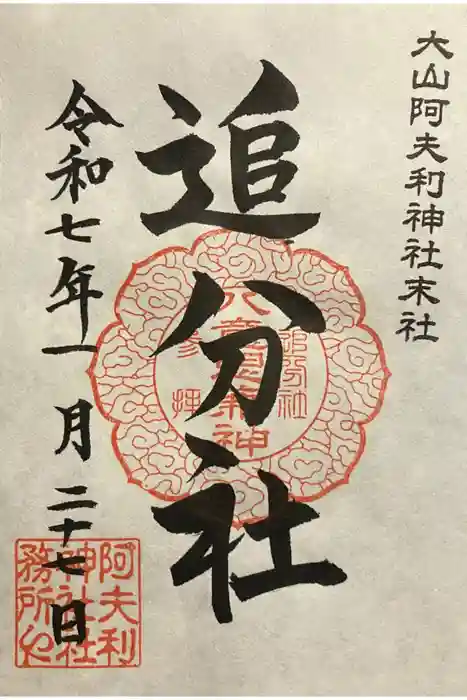 大山阿夫利神社末社
追分社
令和七年一月二十七日
追分社
参拝
阿夫利
神社社
務所也